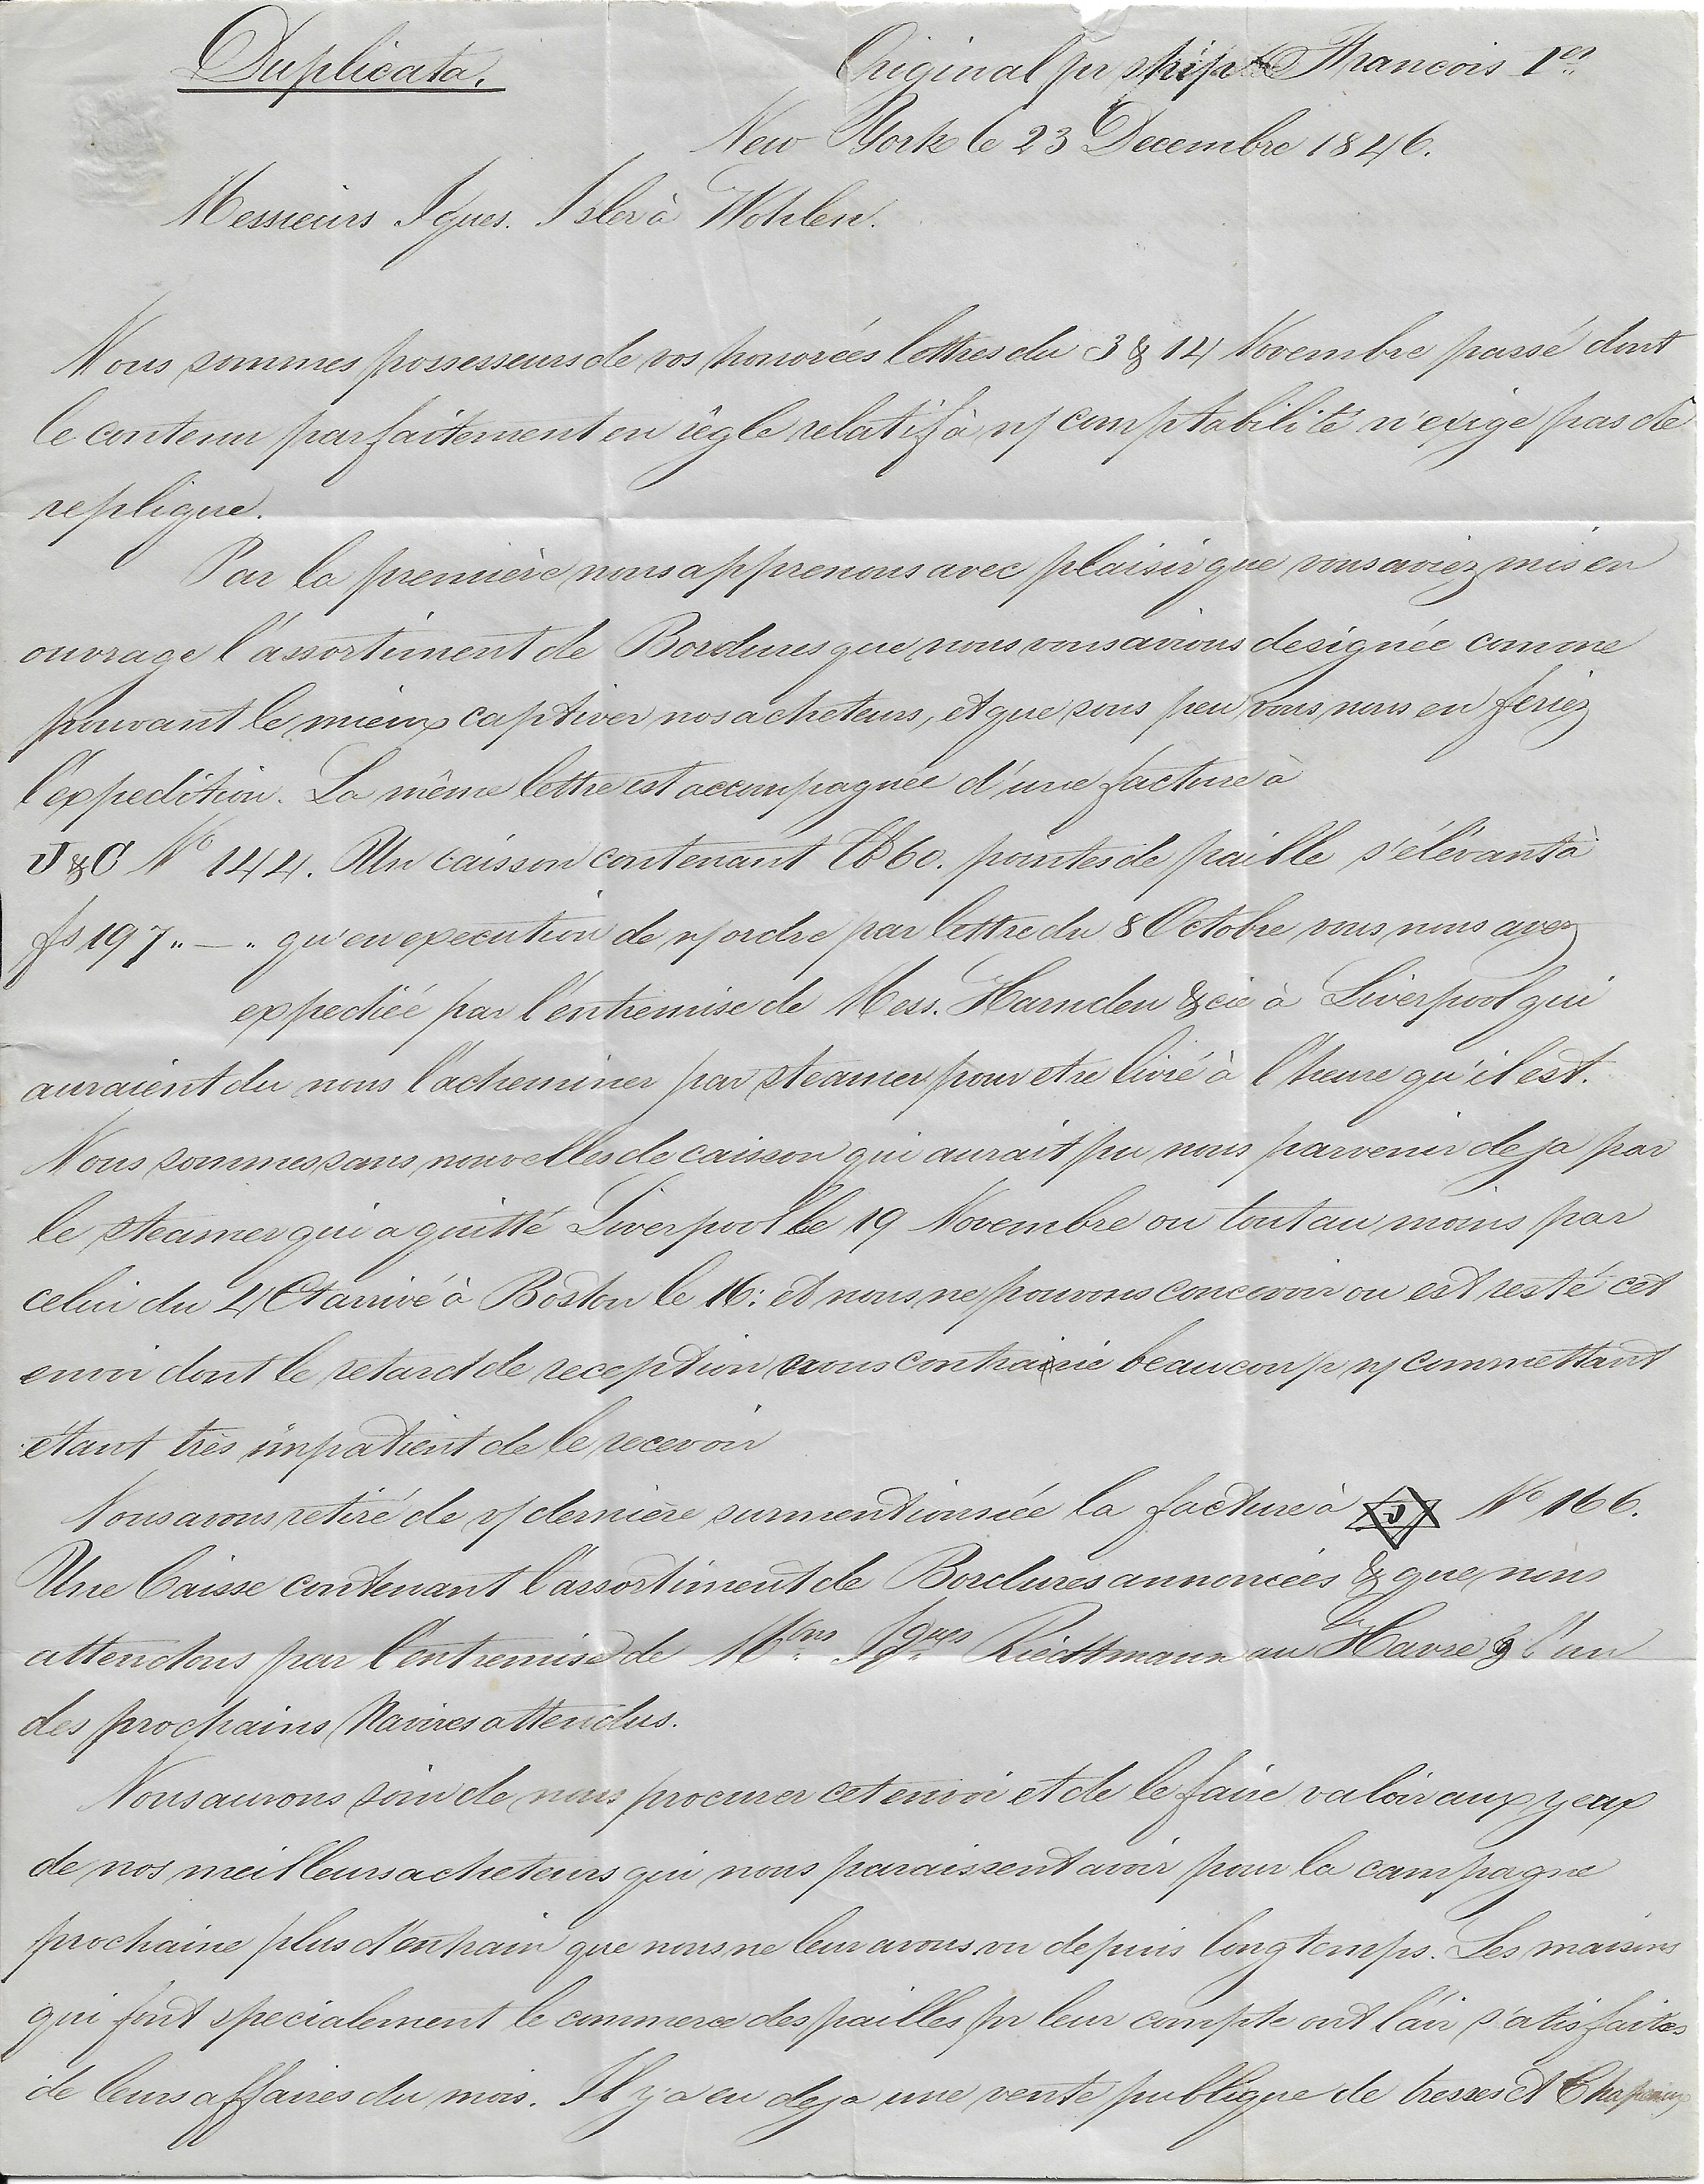 Duplicata.
Original pr ship François 1er
New York le 23 Decembre 1846.
Messieurs Jques. Isler à Wohlen.
Nous sommes possesseurs de vos honorées lettres du 3 & 14 Novembre passé dont
le contenu parfaitement en règle relatif à n/ comptabilité n'exige pas de
replique.
Par la première nous apprenons avec plaisir que vous aviez mis en
ouvrage l'assortiment de Bordures que nous vous avions designée comme
pouvant le mieux captiver nos acheteurs, et que sous peu vous nous en feriez
l'expedition. La même lettre est accompagnée d'une facture à
J & C No 144. Un caisson contenant lb 60. pointes de paille s'élévant à
fs 197 „ — „ qu'en execution de n/ ordre par lettre du 8 Octobre vous nous avez
expediée par l'entremise de Mess. Harnden & cie à Liverpool qui
auraient du nous l'acheminer par steamer pour etre livré à l'heure qu'il est.
Nous sommes sans nouvelles de caisson qui aurait pu nous parvenir deja par
le steamer qui a quitté Liverpool le 19 Novembre ou tout au moins par
celui du 4 Ct arrivé à Boston le 16: et nous ne pouvons concevoir ou est resté cet
envoi dont le retard de reception nous contrarie beaucoup n/ commettant
étant très impatient de le recevoir
Nous avons retiré de v/ dernière surmentionnée la facture à J No 166.
Une Caisse contenant l'assortiment de Bordures annoncées & que nous
attendons par l'entremise de Mrs Jques Riedtmann au Havre & l'un
des prochains Navires attendus.
Nous aurons soin de nous procurer cet envoi et de le faire valoir aux yeux
de nos meilleurs acheteurs qui nous paraissent avoir pour la campagne
prochaine plus d'entrain que nous ne leur avons vu depuis longtemps. Les maisons
qui font specialement le commerce des pailles pr leur compte ont l'air satisfaites
de leurs affaires du mois. Il y a eu deja une vente publique de tresses et Chapeaux